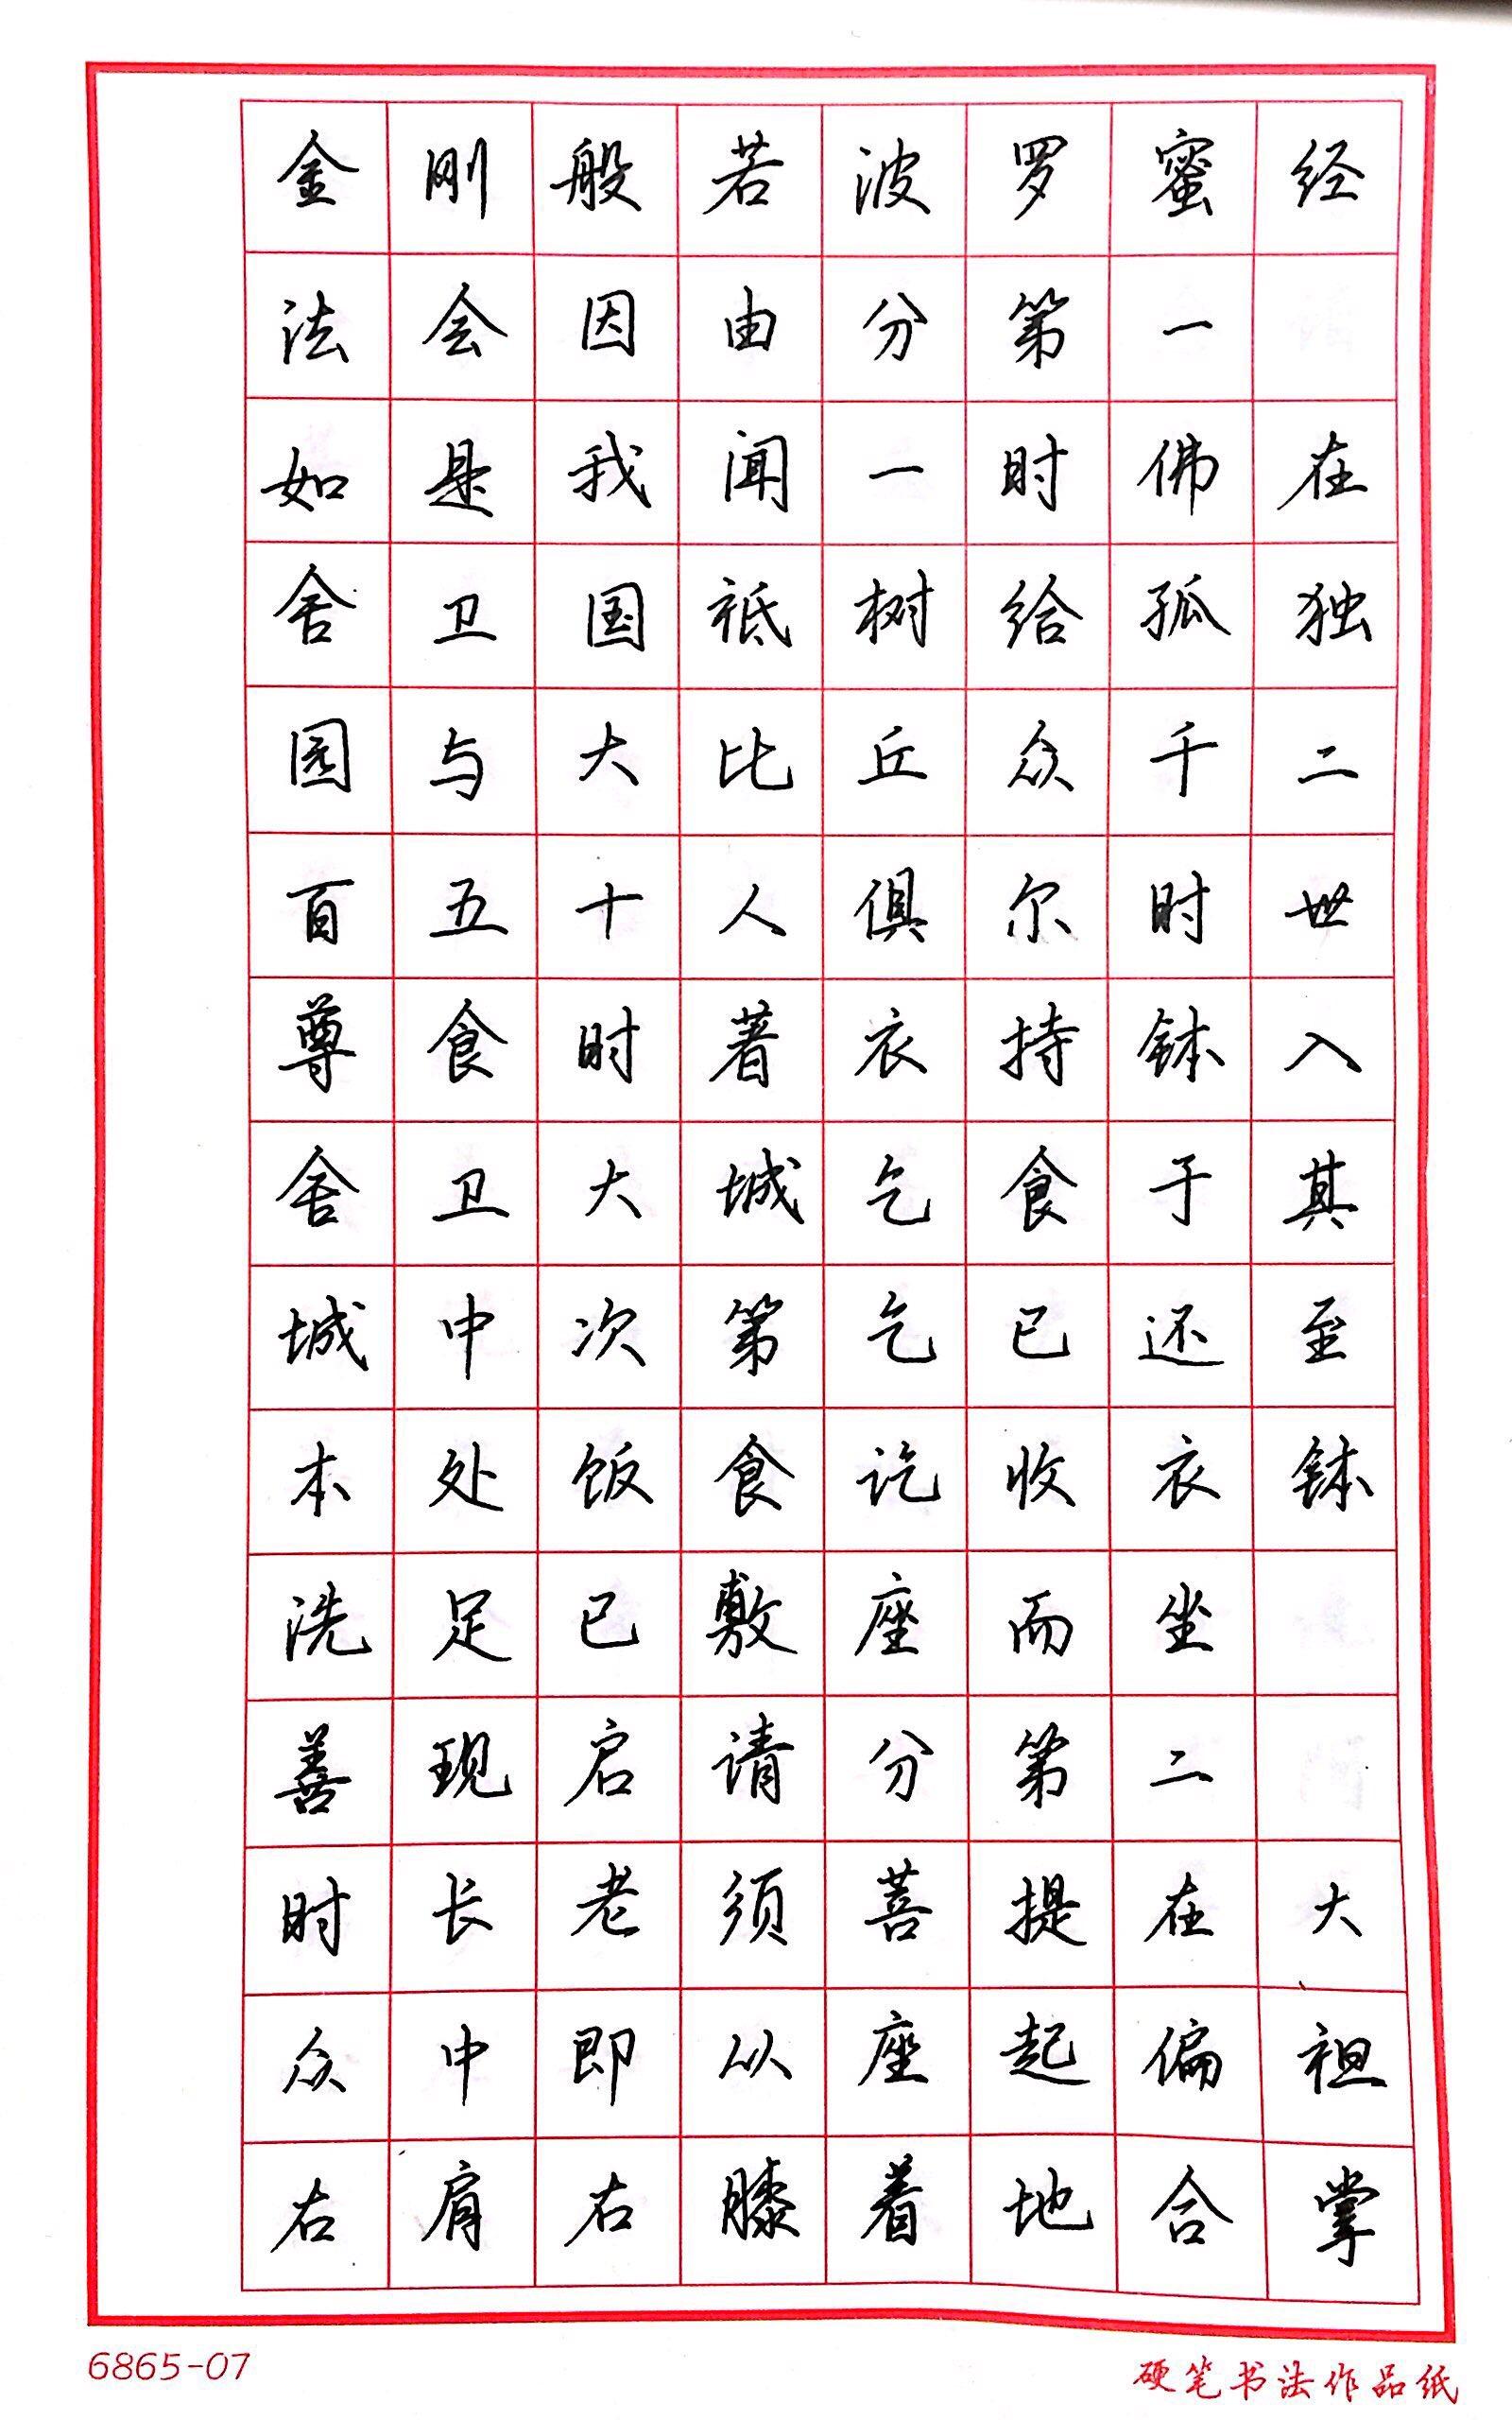 金刚般若波罗蜜经
法会因由分第一
如是我闻一时佛在
舍卫国祗树给孤独
园与大比丘众千二
百五十人俱尔时世
尊食时著衣持钵入
舍卫大城乞食于其
城中次第乞已还至
本处饭食讫收衣钵
洗足已敷座而坐
善现启请分第二
时长老须菩提在大
众中即从座起偏袒
右肩右膝着地合掌
6865-07
硬笔书法作品纸